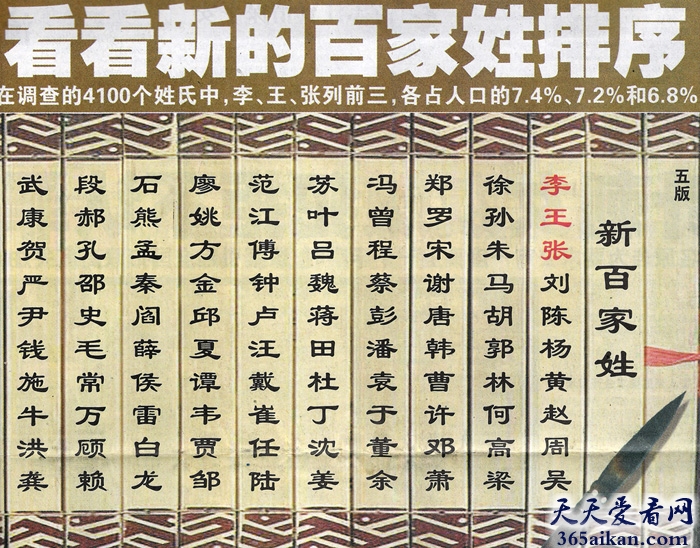 看看新的百家姓排序
在调查的4100个姓氏中,李、王、张列前三,各占人口的7.4%、7.2%和6.8%
五版
新百家姓
李王张刘陈杨黄赵周吴
徐孙朱马胡郭林何高梁
郑罗宋谢唐韩曹许邓萧
冯曾程蔡彭潘袁于董余
苏叶吕魏蒋田杜丁沈姜
范江傅钟卢汪戴崔任陆
廖姚方金邱夏谭韦贾邹
石熊孟秦阎薛侯雷白龙
段郝孔邵史毛常万顾赖
武康贺严尹钱施牛洪龚
天天爱看网
365aikan.com